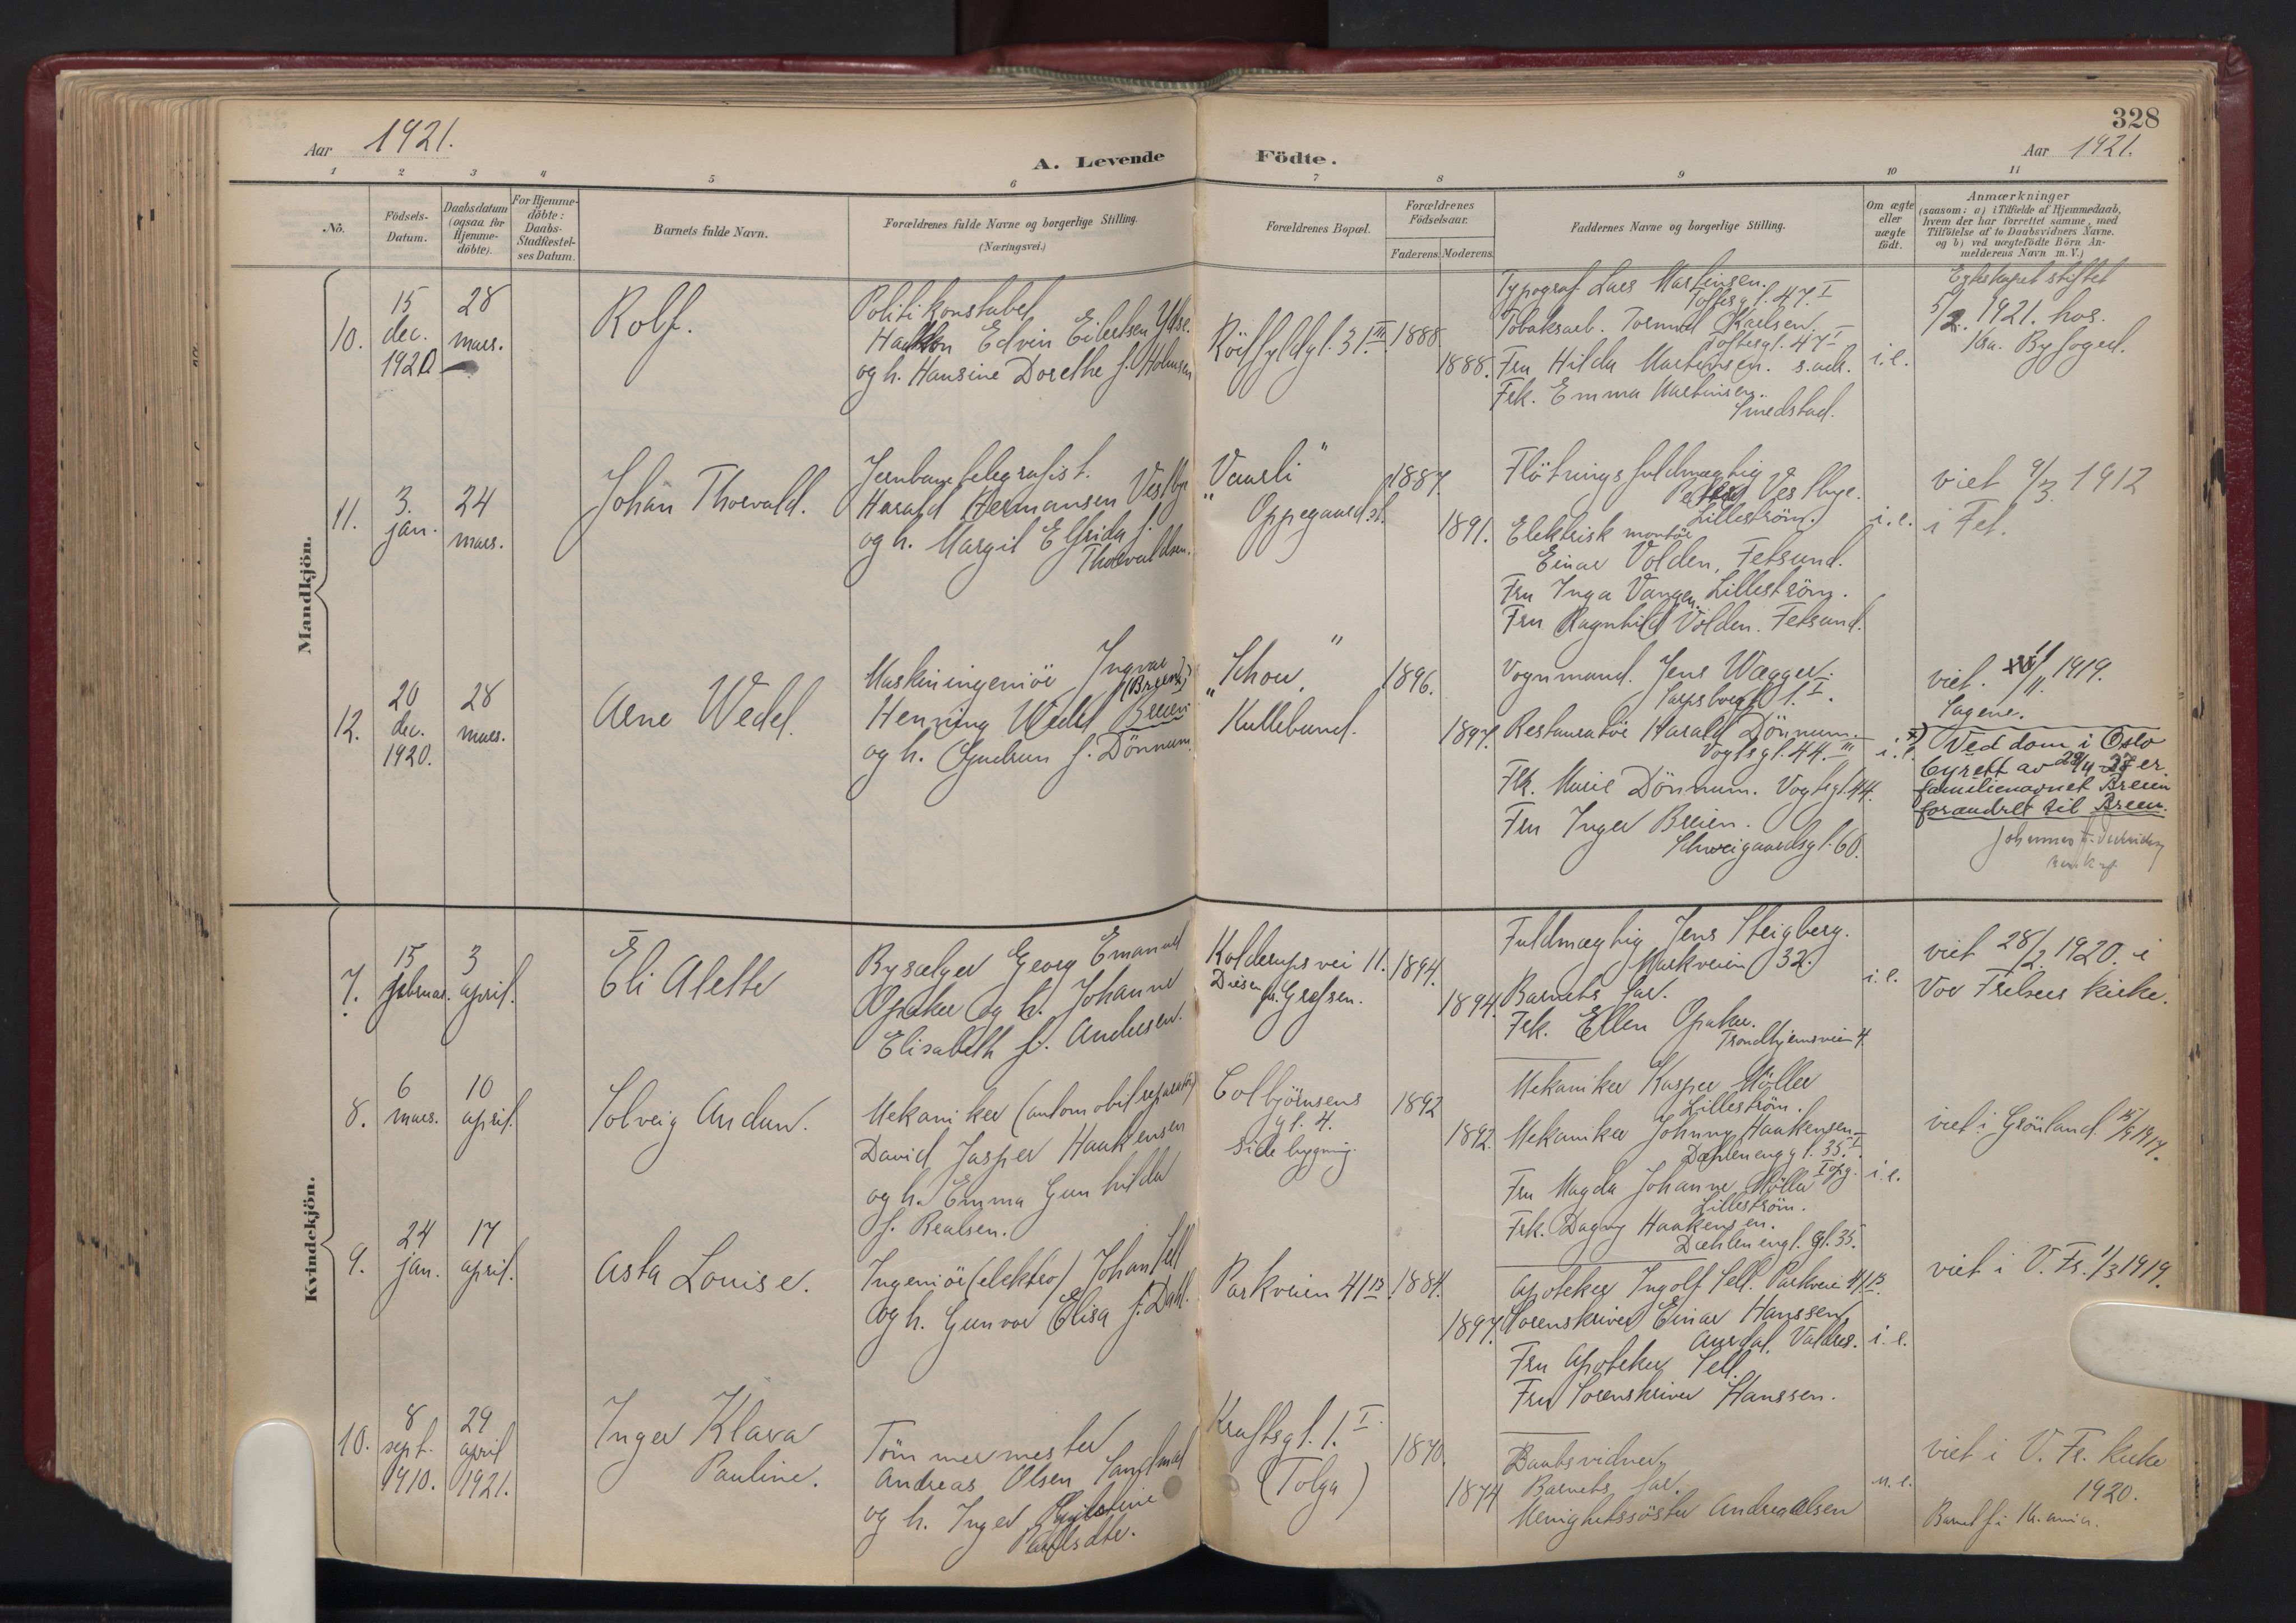 328
Aar 1921.
A. Levende Födte.
Aar 1921.
1 2 3 4 5 6 7 8 9 10 11
No.
Födsels-
Datum.
Daabsdatum
(ogsaa for
Hjemme-
döbte).
For Hjemme-
döbte:
Daabs-
Stadfæstel-
ses Datum.
Barnets fulde Navn.
Forældrenes fulde Navne og borgerlige Stilling.
(Næringsvei.)
Forældrenes Bopæl.
Forældrenes
Födselsaar.
Faderens. Moderens.
Faddernes Navne og borgerlige Stilling.
Om ægte
eller
uægte
födt.
Anmærkninger
(saasom: a) i Tilfælde af Hjemmedaab,
hvem der har forrettet samme, med
Tilföielse af to Daabsvidners Navne.
og b) ved uægtefödte Börn An-
melderens Navn m. V.)
Mandkjön.
10.
15
dec.
1920
28
mars.
Rolf.
Politikonstabel
Haakon Edvin Eilertsen
og h. Hansine Dorethe f. Holmsen
31 III
1888
1888.
Typograf Lars Martinsen.
Toftesgt. 47 I
Tobaksarb. Tormod Karlsen.
Toftesgt. 47 I
Fru Hilda Martinsen. s. adr.
Frk. Emma Martinsen.
Smedstad.
i. e.
Egteskapet stiftet
5/2. 1921. hos.
Kra. Byfoged.
11.
3.
jan.
24
mars.
Johan Thorvald.
Jernbanetelegrafist.
Harald Hermansen Vestbye
og h. Margit Elfrida f.
Thorvaldsen.
"Vaarli"
Oppegaard st.
1887.
1891.
Flötningsfuldmægtig
Vestbye.
Lilleström.
Elektrisk montör
Einar Volden, Fetsund.
Fru Inga Vangen. Lilleström.
Fru Ragnhild Volden. Fetsund.
i. e.
viet 9/3. 1912
i Fet.
12.
20
dec.
1920.
28
mars.
Arne Wedel.
Maskiningeniör Ingvar
(Breen x)
Henning Wedel Breien
og h. Gudrun f. Dönnum.
"Schou"
Kullebund.
1896.
1897.
Vognmand. Jens Wægger.
Sarpsborggt. 1. I.
Restauratör Harald Dönnum.
Vogtsgt. 44. III
Frk. Marie Dönnum. Vogtsgt. 44.
Fru Inger Breien.
Schweigaardsgt. 60.
i. e.
viet. /11. 1919.
Sagene.
x) Ved dom i Oslo
byrett av 29/11-27 er
familienavnet Breien
forandret til Breen.
Kvindekjön.
7.
15
februar.
3
april.
Eli Alette
Bysælger Georg Emanuel
Opaker og h. Johanne
Elisabeth f. Andersen.
Kolderups vei 11.
Disen pr. Grefsen.
1894.
1894.
Fuldmægtig Jens Steigberg.
Markveien 32.
Barnets far.
Frk. Ellen Opaker.
Trondhjemsveien 4.
i. e.
viet 28/2. 1920. i
Vor Frelsers kirke.
8.
6
mars.
10
april.
Solveig Audun.
Mekaniker (automobilreparatör)
David Jasper Haakensen
og h. Emma Gunhilda
f. Realsen.
Colbjörnsens
gt. 4.
sidebygning.
1892
1892.
Mekaniker Kasper Möller
Lilleström.
Mekaniker Johnny Haakensen
Dæhlenenggt. 35. I
I opg.
Fru Magda Johanne Möller
Lilleström.
Frk. Dagny Haakensen.
Dæhleneng gt. 35.
i. e.
viet i Grönland
9.
24
jan.
17
april.
Asta Louise.
Ingeniör (elektro) Johan Sell
og h. Gunvor Elisa f. Dahl.
Parkveien 41 B
1884.
1897.
Apoteker Ingolf Sell. Parkveien 41 B.
Sorenskriver Einar Hanssen,
Aurdal. Valdres.
Fru Apoteker Sell.
Fru Sorenskriver Hanssen.
i. e.
viet i V. Fr. 1/3 1919.
10.
8
sept.
1910.
29
april
1921.
Inger Klara
Pauline.
Tömmermester
Andreas Olsen
og h. Inger
Paulsdtr.
Kraftsgt. 1. I
(Tolga)
1870.
1874
Daabsvidner.
Barnets far.
Menighetssöster Andrea Olsen
u. e.
viet i V. Fr. kirke
1920.
Barnet f. i Kr.ania.